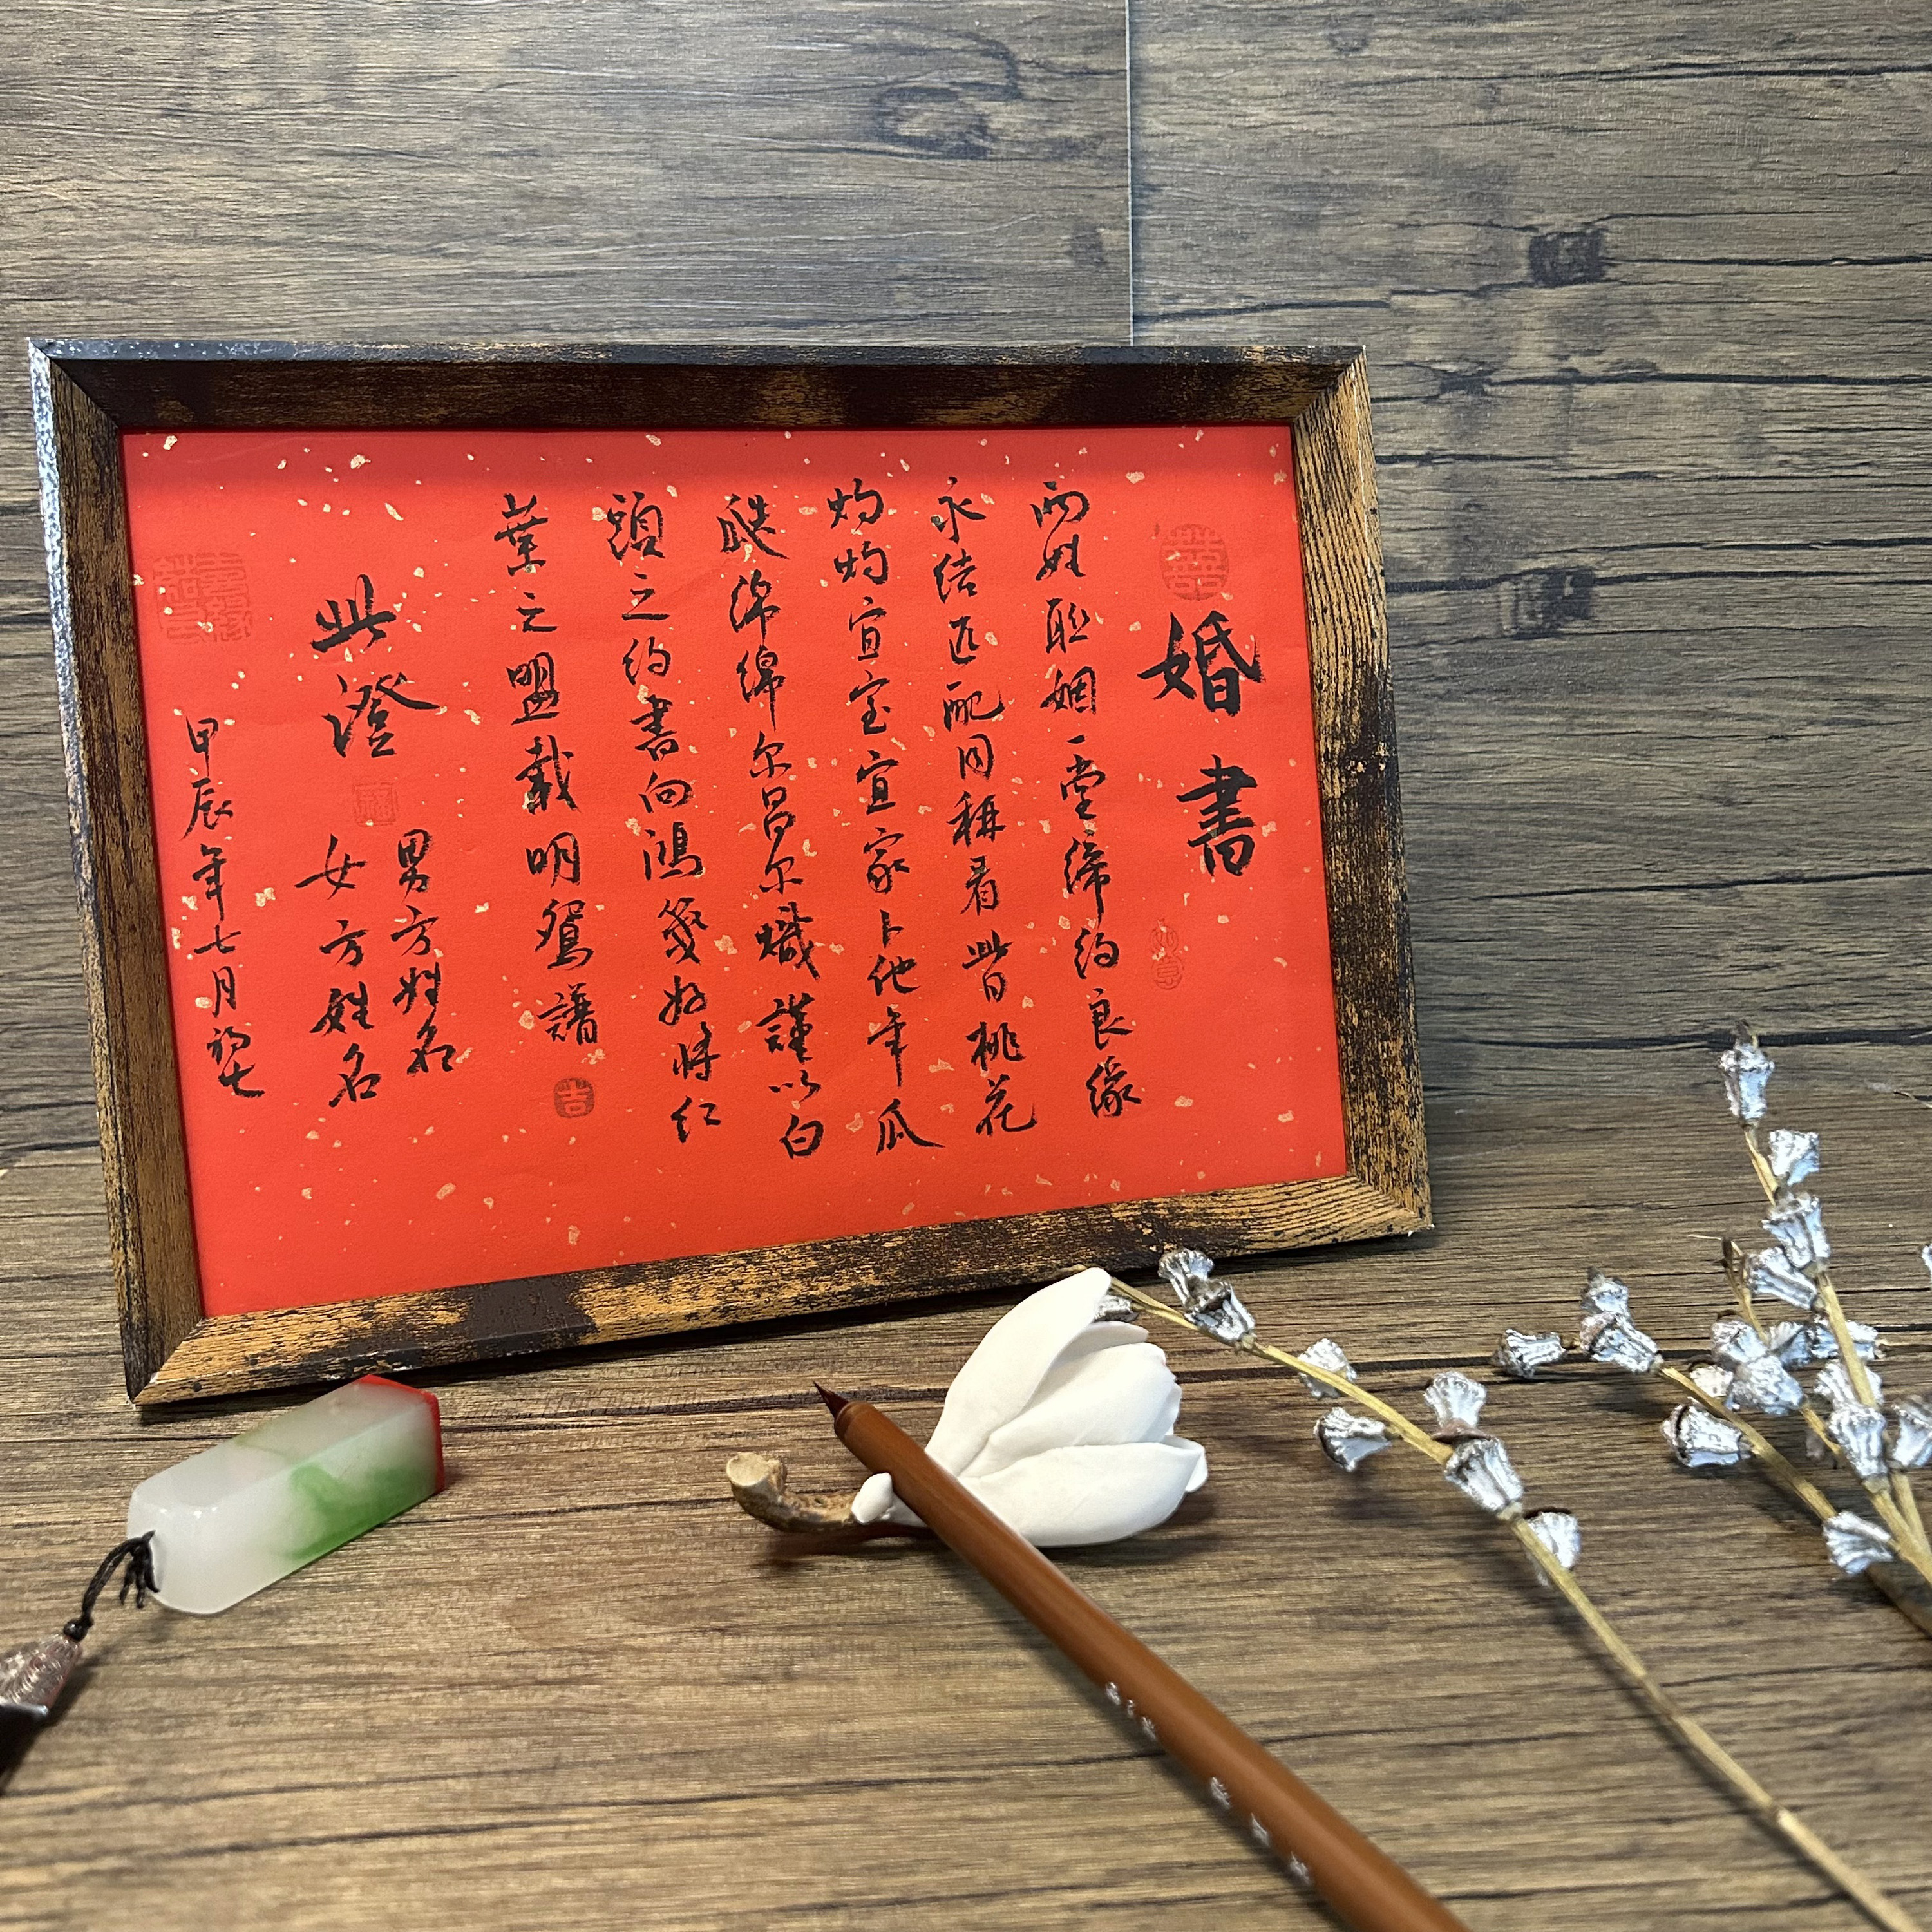 婚書
两姓联姻一堂缔约良缘
永结匹配同称看此日桃花
灼灼宜室宜家卜他年瓜
瓞绵绵尔昌尔熾謹以白
頭之约書向鴻箋好将红
葉之盟載明鴛譜
吉
此澄
男方姓名
女方姓名
甲辰年七月初七